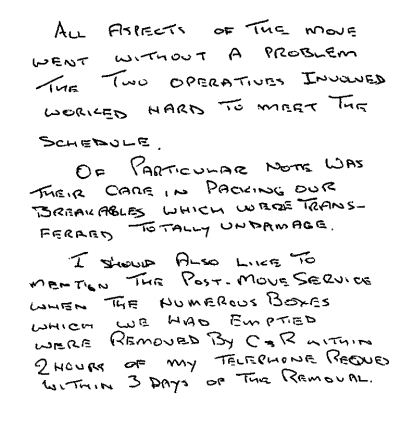 ALL ASPECTS OF THE MOVE
WENT WITHOUT A PROBLEM
THE TWO OPERATIVES INVOLVED
WORKED HARD TO MEET THE
SCHEDULE.
OF PARTICULAR NOTE WAS
THEIR CARE IN PACKING OUR
BREAKABLES WHICH WERE TRANS-
FERRED TOTALLY UNDAMAGE.
I SHOULD ALSO LIKE TO
MENTION THE POST-MOVE SERVICE
WHEN THE NUMEROUS BOXES
WHICH WE HAD EMPTIED
WERE REMOVED BY C&R WITHIN
2 HOURS OF MY TELEPHONE REQUES
WITHIN 3 DAYS OF THE REMOVAL.